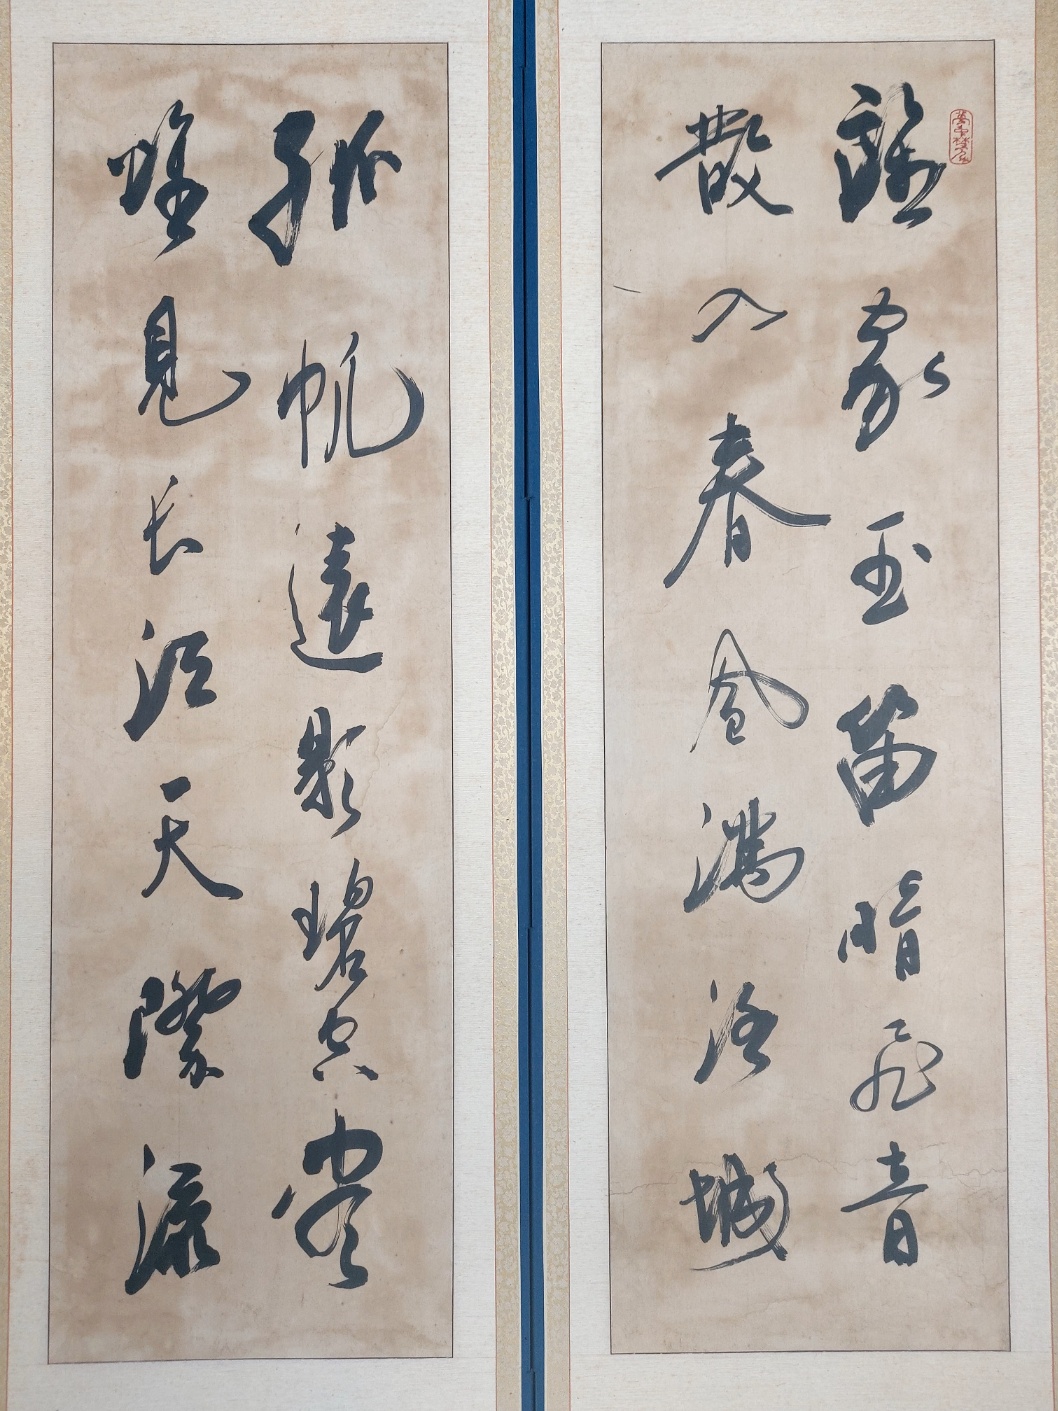 誰家玉笛暗飛音
散入春風満洛城
孤帆遠影碧空尽
唯見长江天際流